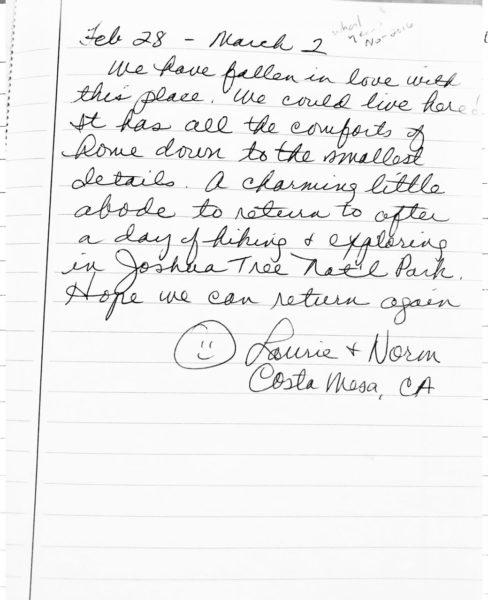 Feb 28 - March 2
We have fallen in love with
this place. We could live here
It has all the comforts of
home down to the smallest
details. A charming little
abode to return to after
a day of hiking & exploring
in Joshua Tree Nat'l Park.
Hope we can return again
Laurie & Norm
Costa Mesa, CA